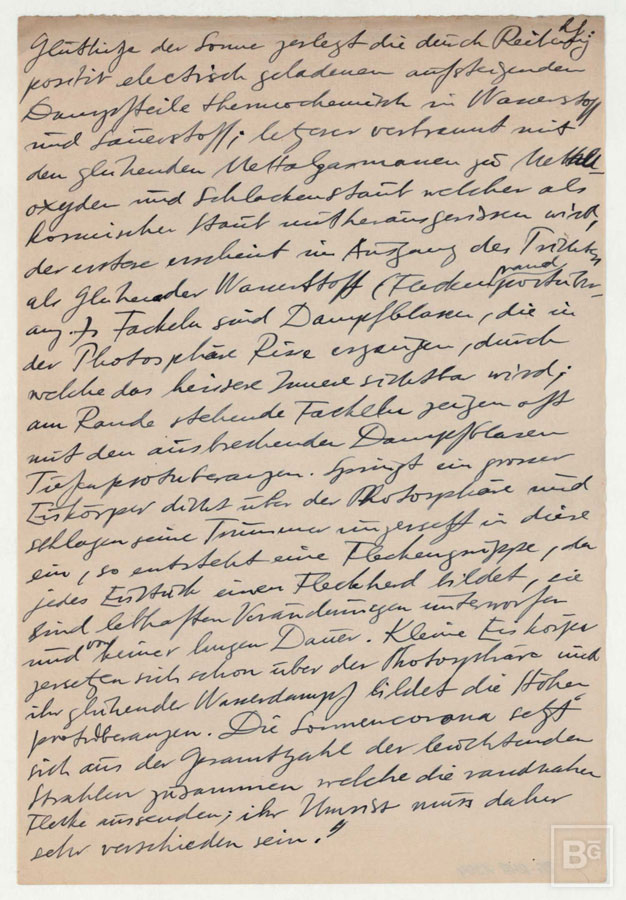 Gluthitze der Sonne zerlegt die durch Reibung
positiv electrisch geladenen aufsteigenden
Dampfteile thermochemisch in Wasserstoff
und Sauerstoff; letzerer verbrannt mit
den glühenden Mettalgasmassen zu Metall-
oxyden und Schlackenstaub welcher als
kosmischer Staub mitherausgerissen wird,
der erstere erscheint im Ausgang des Trichters
als glühender Wasserstoff (Fleckenrandprotuber-
anz.) Fackeln sind Dampfblasen, die in
der Photosphäre Risse erzeugen, durch
welche das heissere Innere sichtbar wird;
am Rande stehende Fackeln zeigen oft
mit den ausbrechenden Dampfblasen
Tiefenprotuberanzen. Springt ein grosser
Eiskörper dicht über der Photosphäre und
schlagen seine Trümmer ungersetzt in diese
ein, so entsteht eine Fleckengruppe, da
jedes Eisstück einen Fleckherd bildet, sie
sind lebhaften Veränderungen unterworfen
und von keiner langen Dauer. Kleine Eiskörper
zersetzen sich schon über der Photosphäre und
ihr glühender Wasserdampf bildet die Höhen-
protuberanzen. Die Sonnencorona setzt
sich aus der Gesamtzahl der leuchtenden
Strahlen zusammen welche die randnahen
Flecke aussenden; ihr Umriss muss daher
sehr verschieden sein."
BG